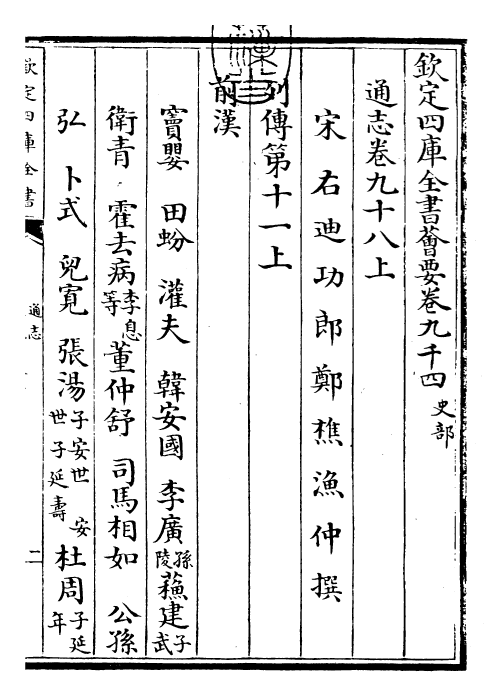 欽定四庫全書薈要卷九千四 史部
通志卷九十八上
宋右迪功郎鄭樵漁仲撰
列傳第十一上
前漢
竇嬰 田蚡 灌夫 韓安國 李廣孫陵 蘓建子武
衛青 霍去病李息等 董仲舒 司馬相如 公孫
弘 卜式 兒寛 張湯子安世 安世子延壽 杜周子延年
欽定四庫全書
通志
二